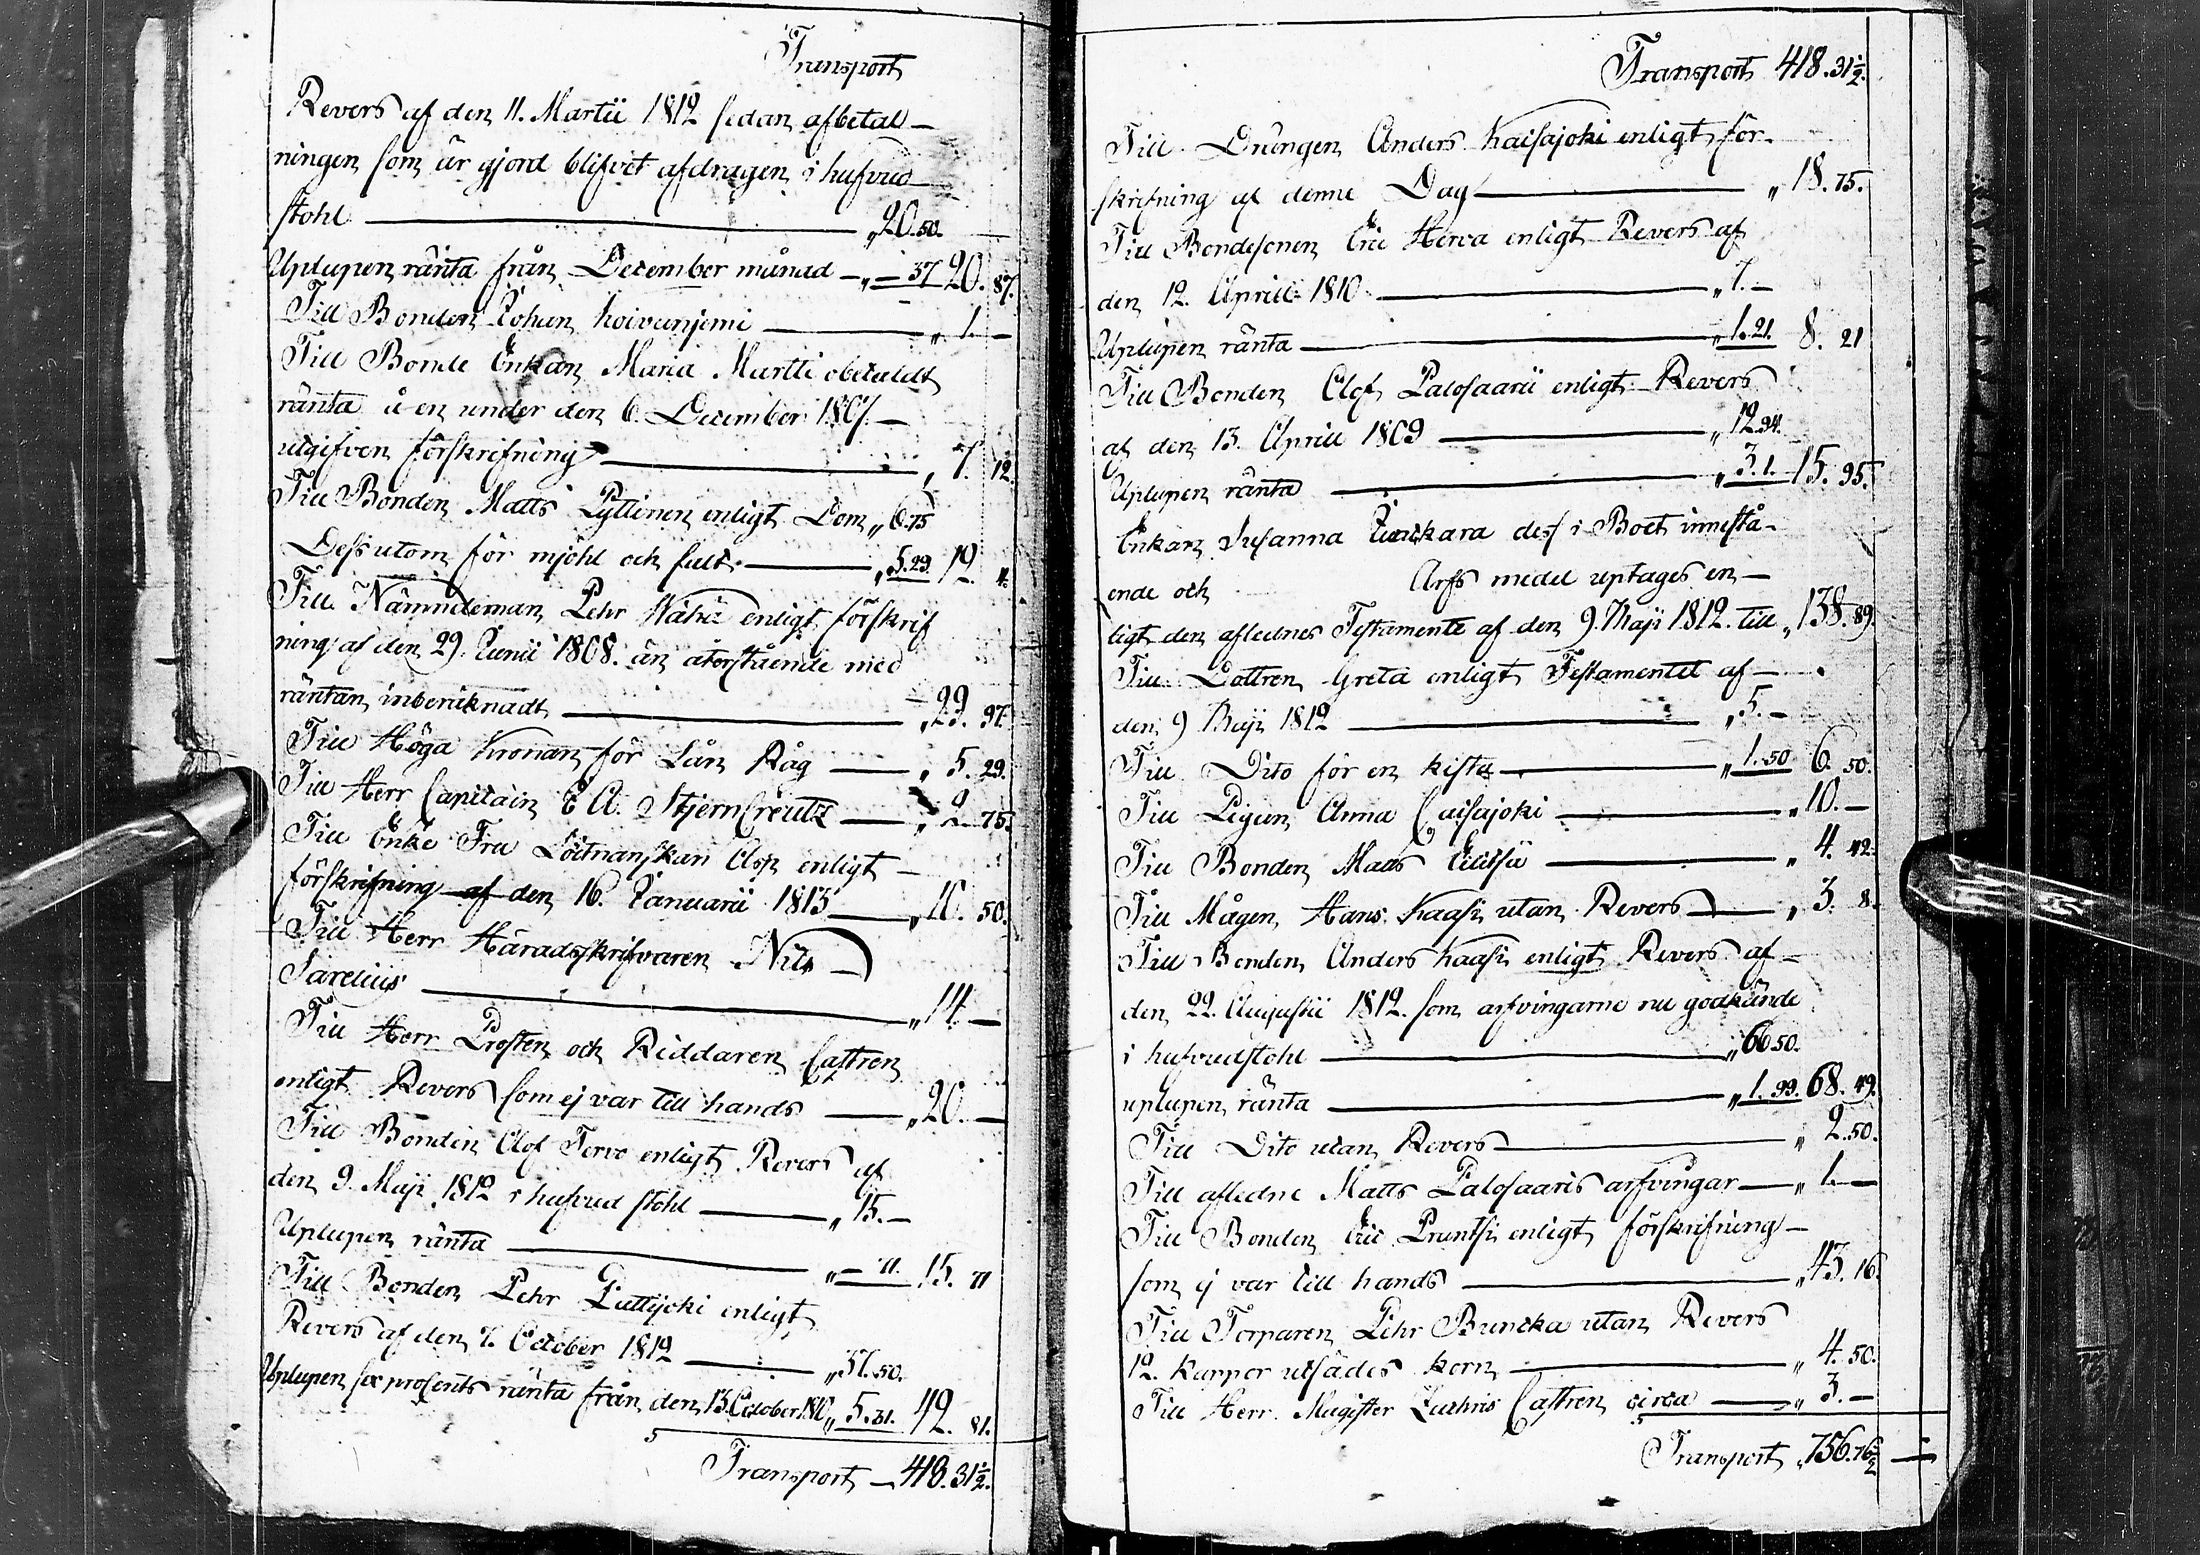 Transport
Revers af den 11. Martii 1812 sedan afbetal–
ningen som är gjord blifvet afdragen i hufvud
stohl — „20.50.
Uplupen ränta från December månad — „ — 37 20. 87.
Till Bonden Johan Koivunjemi — „ 1. —
Till Bonde Enkan Maria Martti obetaldt
ränta å en under den 6. December 1807. —
utgifven förskrifning — „ 7. 12.
Till Bonden Matts Pyttinen enligt Dom „ 6.75
Dessutom för mjöhl och salt. — „ 5.29. 12. 4.
Till Nämndeman Pehr Waha enligt förskrif
ning af den 29. Junii 1808. än återstående med
räntan inberäknadt — „ 29. 97.
Till Höga Kronan för Lån Råg — „ 5. 29.
Till Herr Capitain E A. StjernCreutz — „ 2. 75.
Till Enke Fru Löitnanskan Asp enligt –
förskrifning af den 16. Januarii 1813 — „ 10. 50.
Till Herr Häradsskrifvaren Nils –
Sarelius — „ 14. —
Till Herr Prosten och Riddaren Castren
enligt Revers som ej var till hands — „ 20. —
Till Bonden Olof Tervo enligt Revers af
den 9. Maji 1812 i hufvud stohl — „ 15. —
Uplupen ränta — „ — 71. 15. 71
Till Bonden Pehr Puttijoki enligt
Revers af den 7. October 1812 — „ 37.50.
Uplupen sex procents ränta från den 13 October 1810 „ 5.31. 42. 81.
Transport — 418.31½.
Transport 418.31½.
Till Drängen Anders Kaisajoki enligt för–
skrifning af denne Dag — „ 18. 75.
Till Bondesonen Eric Herva enligt Revers af
den 12. Aprill 1810. — „ 7. —
Uplupen ränta — „ 1.21. 8. 21
Till Bonden Olof Palosaarii enligt Revers
af den 13. Aprill 1809 — „ 12.94.
Uplupen ränta — „ 3.1. 15. 95.
Enkan Susanna dess i Boet innestå–
ende och Arfs medel uptages en –
ligt den aflednes Testamente af den 9. Maji 1812. till „ 138. 89.
Till Dottren Greta enligt Testamentet af –
den 9 Maji 1812 — „ 5. —
Till Dito för en kista — „ 1.50 6. 50.
Till Pigan Anna Caisajoki — „ 10. —
Till Bonden Maos — „ 4. 42.
Till Mågen Hans Kaasi utan Revers — „ 3. 8.
Till Bonden Anders Kaasi enligt Revers af –
den 22. Augustii 1812. som arfvingarne nu godkände
i hufvudstohl — „ 66 50.
uplupen ränta — „ 1. 99. 68. 49.
Till Dito utan Revers — „ 2.50.
Till afledne Matts Palosaaris arfvingar — „ 1. —
Till Bonden Eric Pruntsi enligt förskrifning –
som ej var till hands — „ 43. 16.
Till Torparen Pehr Buncka utan Revers
12. kappor utsädes korn — „ 4. 50.
Till Herr Magister Zachris Castren circa — „ 3. —
Transport „ 756.76½